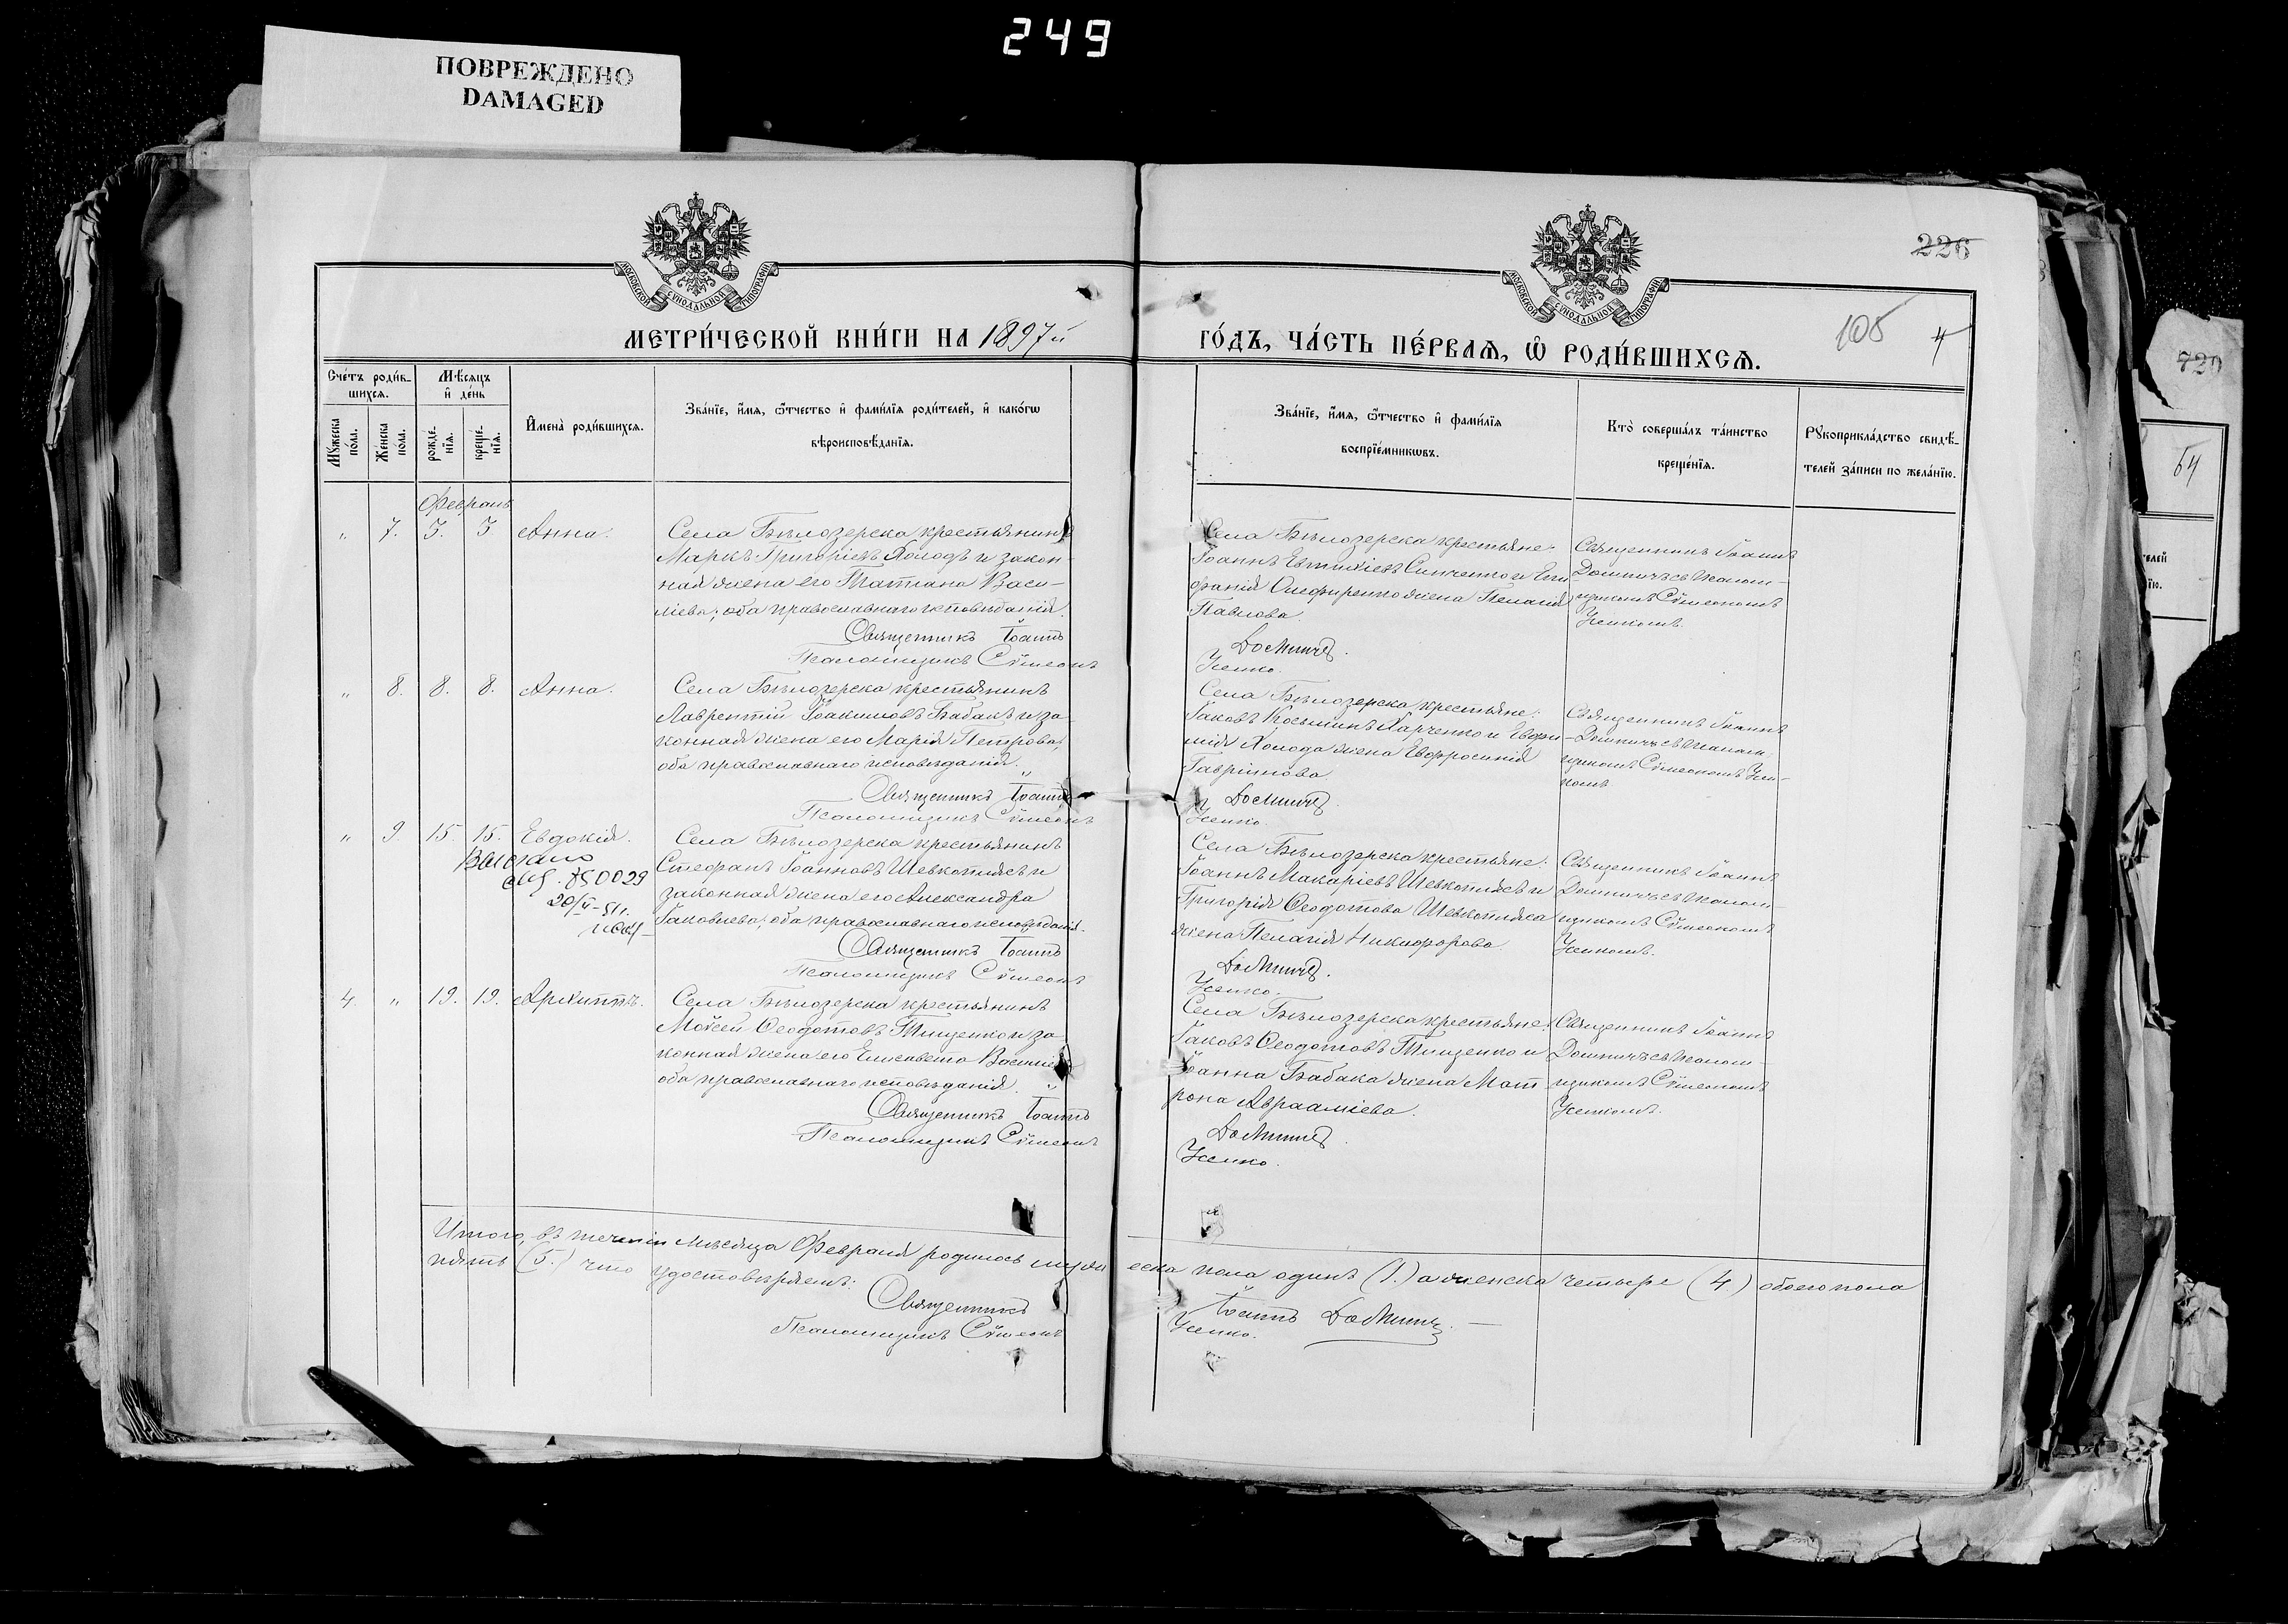 249
ПОВРЕЖДЕНО
DAMAGED
МОСКОВСКОЙ СѴНОДАЛЬНОЙ ТИПОГРАФІИ
МОСКОВСКОЙ СѴНОДАЛЬНОЙ ТИПОГРАФІИ
226
МЕТРИ́ЧЕСКОЙ КНИ́ГИ НА 1897й
ГО́ДЪ, ЧА́СТЬ ПЕ́РВАЯ, Ѽ РОДИ́ВШИХСЯ.
105
4
729
64
Сче́тъ роди́в-
шихся.
Мѣ́сяцъ
и҆ де́нь
Му́жеска
по́ла.
Же́нска
по́ла.
рожде-
нїя.
креще-
нїя.
И҆мена̀ роди́вшихся.
Зва́нїе, и҆́мя, ѻ҆́тчество и҆ фами́лїя роди́телей, и҆ како́гѡ
вѣроисповѣ́данїя.
Зва́нїе, и҆́мя, ѻ҆́тчество и҆ фами́лїя
воспрїе́мникѡвъ.
Кто̀ соверша́лъ та́инство
креще́нїя.
Рукоприкла́дство свидѣ́-
телей за́писи по жела́нїю.
Февраль
" 7. 3. 3. Анна.
Села Бѣлозерска крестьянинъ
Маркъ Григоріевъ Холодъ и закон-
ная жена его Татіана Васи-
ліева, оба православнаго исповѣданія.
Священникъ Іоаннъ
Псаломщикъ Сѵмеонъ
Села Бѣлозерска крестьяне:
Іоаннъ Евтихіевъ Синченко и Епи
фанія Олефиренко жена Пелагія
Павлова.
Досничъ.
Усенко.
Священникъ Іоаннъ
Досничъ съ псалом-
щикомъ Сѵмеономъ
Усенкомъ.
" 8. 8. 8. Анна.
Села Бѣлозерска крестьянинъ
Лаврентій Іоакимовъ Бабакъ и за-
конная жена его Марія Петрова,
оба православнаго исповѣданія.
Священникъ Іоаннъ
Псаломщикъ Сѵмеонъ
Села Бѣлозерска крестьяне:
Іаковъ Косьминъ Харченко и Евфи-
мія Холода жена Евфросинія
Гавріилова.
Досничъ.
Усенко.
Священникъ Іоаннъ
Досничъ съ псалом-
щикомъ Сѵмеономъ Усен-
комъ.
" 9 15. 15. Евдокія.
Выслано
850029
Села Бѣлозерска крестьянинъ
Стефанъ Іоанновъ Шевкоплясъ и
законная жена его Александра
Іаковлева, оба православнаго исповѣданія.
Священникъ Іоаннъ
Псаломщикъ Сѵмеонъ
Села Бѣлозерска крестьяне:
Іоаннъ Макаріевъ Шевкоплясъ и
Григорія Ѳеодотова Шевкопляса
жена Пелагія Никифорова.
Досничъ.
Усенко.
Священникъ Іоаннъ
Досничъ съ псалом-
щикомъ Сѵмеономъ
Усенкомъ.
4. " 19. 19. Архиппъ.
Села Бѣлозерска крестьянинъ
Моѵсей Ѳеодотовъ Тищенко и за-
конная жена его Елисавета Василіева
оба православнаго исповѣданія.
Священникъ Іоаннъ
Псаломщикъ Сѵмеонъ
Села Бѣлозерска крестьяне:
Іаковъ Ѳеодотовъ Тищенко и
Іоанна Бабака жена Мат-
рона Авраамiева.
Досничъ.
Усенко.
Священникъ Іоаннъ
Досничъ съ псалом-
щикомъ Сѵмеономъ
Усенкомъ.
Итого, въ теченіи мѣсяца Февраля родилось мужеска пола одинъ (1.) а женска четыре (4.) обоего пола
пять (5.) что удостовѣряемъ:
Священникъ Іоаннъ Досничъ.
Псаломщикъ Сѵмеонъ Усенко.